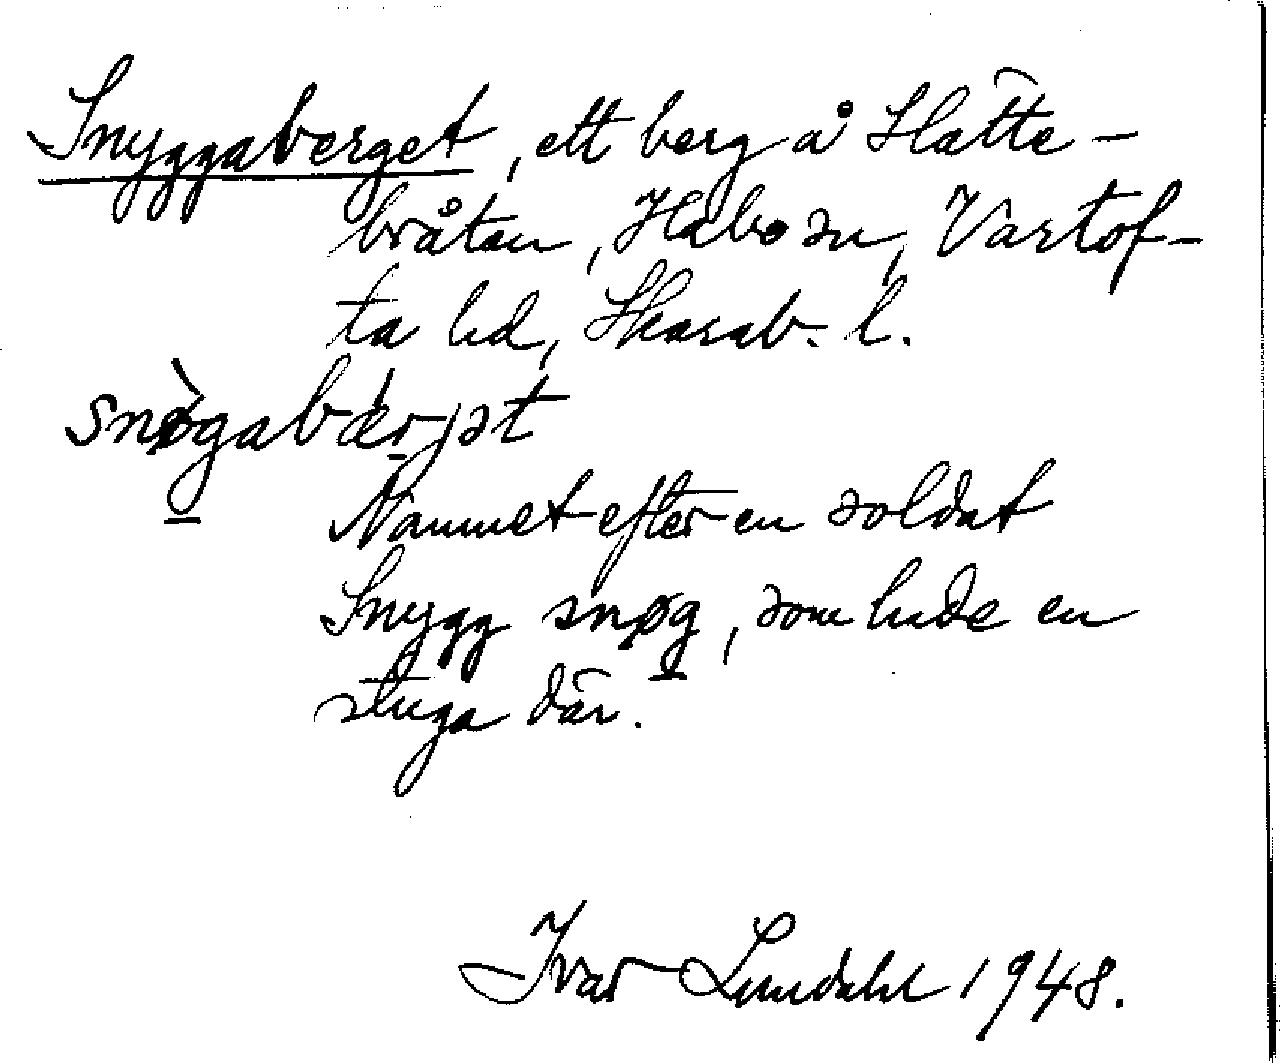 Snyggaberget, ett berg å Slätte-
bråten, Habo sn, Vartof-
ta hd, Skarab. l.
snøgabærjət
Namnet efter en soldat
Snygg snøg, som hade en
stuga där.
Ivar Lundahl 1948.